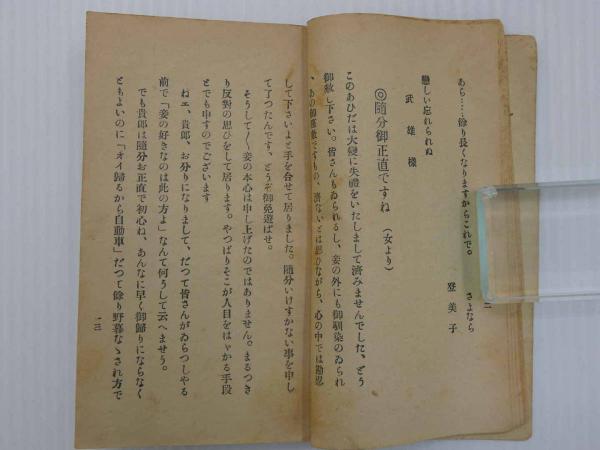 あら…餘り長くなりますからこれで。
さよなら
登美子
戀しい忘れられぬ
武雄樣
◎隨分御正直ですね（女より）
このあひだは大變に失禮をいたしまして濟みませんでした、どう
御赦し下さい。皆さんもゐられるし、妾の外にも御馴染のゐられ
、あの御座敷ですもの、濟ないとは思ひながら、心の中では勘忍
して下さいよと手を合せて居りました。隨分いけすかない事を申し
て了つたんです、どうぞ御免遊ばせ。
そうして〳〵妾の本心は申し上げたのではありません。まるつき
り反對の思ひをして居ります。やつぱりそこが人目をはゞかる手段
とでも申すのでございます
ねエ、貴郎、お分りになりまして、だつて皆さんがゐらつしやる
前で「妾の好きなのは此の方よ」なんて何うして云へませう。
でも貴郎は隨分お正直で初心ね、あんなに早く御歸りにならなく
ともよいのに「オイ歸るから自動車」だつて餘り野暮なされ方で
一三